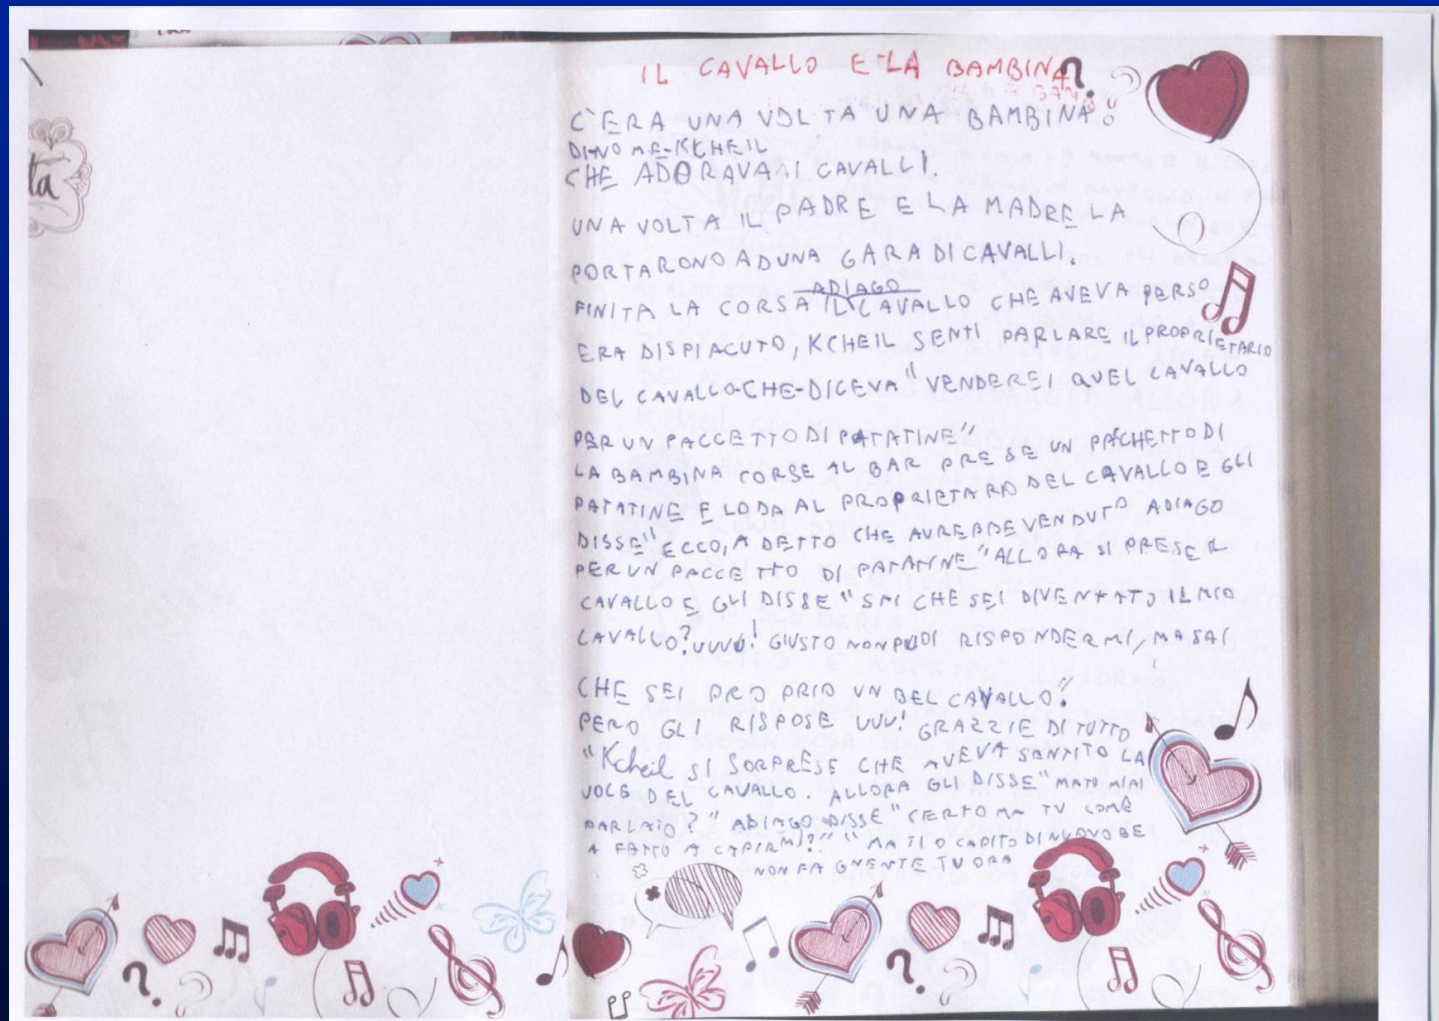 ta
IL CAVALLO E LA BAMBINA
C'ERA UNA VOLTA UNA BAMBINA
DI NOME KCHEIL
CHE ADORAVA I CAVALLI.
UNA VOLTA IL PADRE E LA MADRE LA
PORTARONO AD UNA GARA DI CAVALLI.
ADIAGO
FINITA LA CORSA IL CAVALLO CHE AVEVA PERSO
ERA DISPIACUTO, KCHEIL SENTI PARLARE IL PROPRIETARIO
DEL CAVALLO-CHE-DICEVA "VENDEREI QUEL CAVALLO
PER UN PACCETTO DI PATATINE"
LA BAMBINA CORSE AL BAR PRESE UN PACHETTO DI
PATATINE E LO DA AL PROPRIETARO DEL CAVALLO E GLI
DISSE "ECCO, A DETTO CHE AVREBBE VENDUTO ADIAGO
PER UN PACCETTO DI PATATINE" ALLORA SI PRESE IL
CAVALLO E GLI DISSE "SAI CHE SEI DIVENTATO IL MIO
CAVALLO? UUUU! GIUSTO NON PUOI RISPONDERMI, MA SAI
CHE SEI PROPRIO UN BEL CAVALLO!"
PERO GLI RISPOSE UUU! GRAZZIE DI TUTTO
"Kcheil SI SORPRESE CHE AVEVA SENTITO LA
VOCE DEL CAVALLO. ALLORA GLI DISSE "MA TU MI AI
PARLATO?" ADIAGO DISSE "CERTO MA TU COME
A FATTO A CAPIRMI?" "MA TI O CAPITO DI NUOVO BE
NON FA GNENTE TU ORA